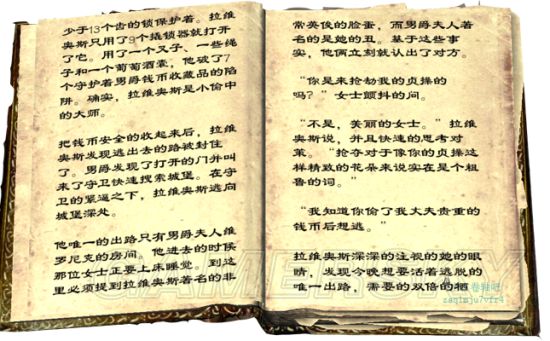 少于13个齿的锁保护着。拉维
奥斯只用了9个撬锁器就打开
了它。用了一个叉子、一些绳
子和一个葡萄酒囊,他破了7
个守护着男爵钱币收藏品的陷
阱。确实,拉维奥斯是小偷中
的大师。
把钱币安全的收起来后,拉维
奥斯发现逃出去的路被封住
了。男爵发现了打开的门并叫
来了守卫快速搜索城堡。在守
卫的紧逼之下,拉维奥斯逃向
城堡深处。
他唯一的出路只有男爵夫人维
罗尼克的房间。他进去的时候
那位女士正要上床睡觉。到这
里必须提到拉维奥斯著名的非
常英俊的脸蛋,而男爵夫人著
名的是她的丑。基于这些事
实,他俩立刻就认出了对方。
“你是来抢劫我的贞操的
吗?”女士颤抖的问。
“不是,美丽的女士。”拉维
奥斯说,并且快速的思考对
策。“抢夺对于像你的贞操这
样精致的花朵来说实在是个粗
鲁的词。”
“我知道你偷了我大夫贵重的
钱币后想逃。”
拉维奥斯深深的注视的她的眼
睛,发现今晚想要活着逃脱的
唯一出路,需要的双倍的牺
zaqimju7vfr4